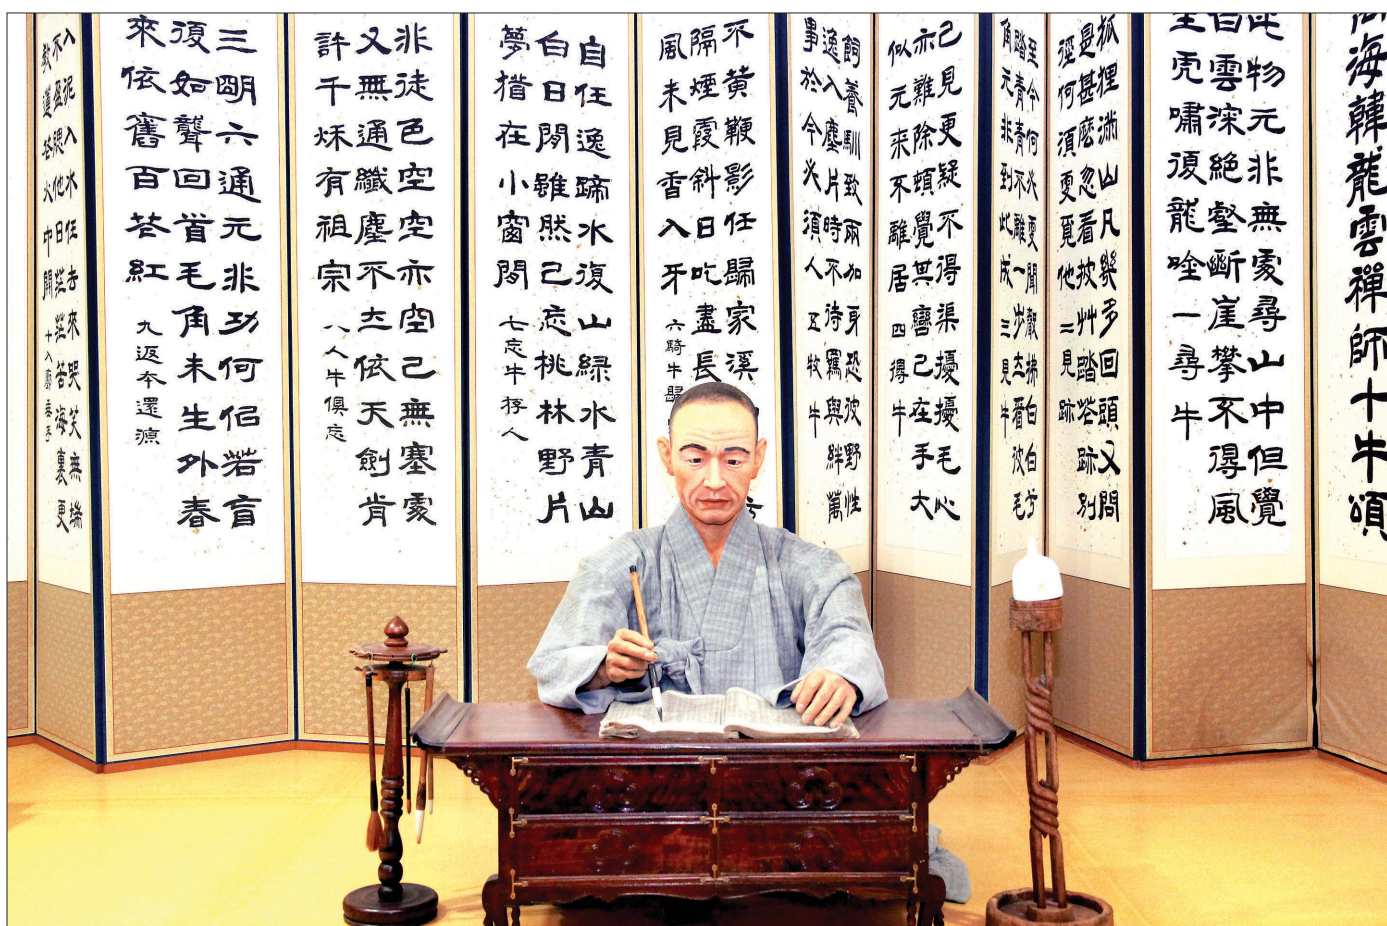 萬海韓龍雲禪師十牛頌
此物元非無處尋山中但覺
白雲深絕壑斷崖攀不得風
生虎嘯復龍唫 一尋牛
狐狸滿山凡幾多回頭又問
是何甚麼忽看披艸踏花跡別
徑何須更覓他 二見跡
至今何必更聞聲拂白白兮
踏青青不離一步立看彼毛
角元非到此成 三見牛
已見更疑不得渠擾擾毛心
亦難除頓覺其轡已在手大
似元来不離居 四得牛
飼養馴致兩加身恐彼野性
逸入塵片時不待羈與絆萬
事於今必須人 五牧牛
不費鞭影任歸家溪
隔煙霞斜日吃盡長
風未見香入牙 六騎牛歸
自任逸蹄水復山綠水青山
白日閒雖然已忘桃林野片
夢猶在小窗間 七忘牛存人
非徒色空空亦空已無塞處
又無通纖塵不立依天劍肯
許千秋有祖宗 八人牛俱忘
三明六通元非功何侣若盲
復如聾回首毛角未生外春
來依舊百花紅 九返本還源
入泥入水任去來哭笑無端
不盈腮他日茫茫苦海裏更
教蓮花火中開 十入廛垂手